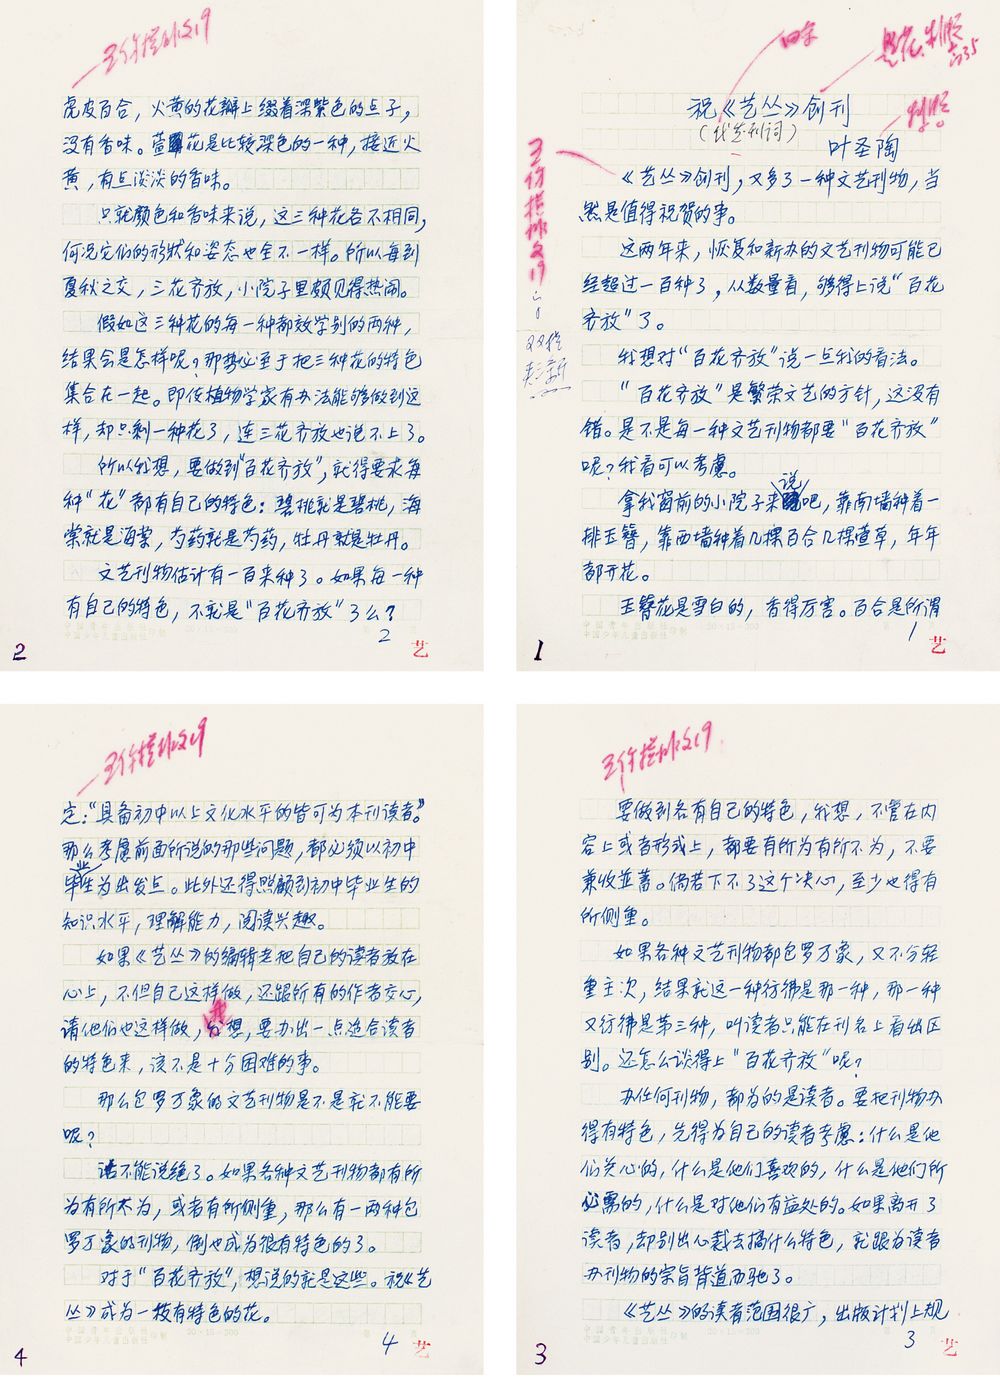 祝《艺丛》创刊
(代发刊词)
叶圣陶
《艺丛》创刊，又多了一种文艺刊物，当
然是值得祝贺的事。
这两年来，恢复和新办的文艺刊物可能已
经超过一百种了，从数量看，够得上说“百花
齐放”了。
我想对“百花齐放”说一点我的看法。
“百花齐放”是繁荣文艺的方针，这没有
错。是不是每一种文艺刊物都要“百花齐放”
呢？我看可以考虑。
拿我窗前的小院子来说吧，靠南墙种着一
排玉簪，靠西墙种着几棵百合几棵萱草，年年
都开花。
玉簪花是雪白的，香得厉害。百合是所谓
1
艺
1
虎皮百合，火黄的花瓣上缀着深紫色的点子，
没有香味。萱花是比较深色的一种，接近火
黄，有点淡淡的香味。
只就颜色和香味来说，这三种花各不相同，
何况它们的形状和姿态也全不一样。所以每到
夏秋之交，三花齐放，小院子里颇见得热闹。
假如这三种花的每一种都效学别的两种，
结果会是怎样呢？那势必至于把三种花的特色
集合在一起。即使植物学家有办法能够做到这
样，却只剩一种花了，连三花齐放也说不上了。
所以我想，要做到“百花齐放”，就得要求每
种“花”都有自己的特色：碧桃就是碧桃，海
棠就是海棠，芍药就是芍药，牡丹就是牡丹。
文艺刊物估计有一百来种了。如果每一种
有自己的特色，不就是“百花齐放”了么？
2
艺
2
要做到各有自己的特色，我想，不管在内
容上或者形式上，都要有所为有所不为，不要
兼收并蓄。倘若下不了这个决心，至少也得有
所侧重。
如果各种文艺刊物都包罗万象，又不分轻
重主次，结果就这一种彷彿是那一种，那一种
又彷彿是第三种，叫读者只能在刊名上看出区
别。还怎么谈得上“百花齐放”呢？
办任何刊物，都为的是读者。要把刊物办
得有特色，先得为自己的读者考虑：什么是他
们关心的，什么是他们喜欢的，什么是他们所
必需的，什么是对他们有益处的。如果离开了
读者，却别出心裁去搞什么特色，就跟为读者
办刊物的宗旨背道而驰了。
《艺丛》的读者范围很广，出版计划上规
3
艺
3
定：“具备初中以上文化水平的皆可为本刊读者。”
那么考虑前面所说的那些问题，都必须以初中
毕业生为出发点。此外还得照顾到初中毕业生的
知识水平，理解能力，阅读兴趣。
如果《艺丛》的编辑老把自己的读者放在
心上，不但自己这样做，还跟所有的作者交心，
请他们也这样做，我想，要办出一点适合读者
的特色来，该不是十分困难的事。
那么包罗万象的文艺刊物是不是就不能要
呢？
话不能说绝了。如果各种文艺刊物都有所
为有所不为，或者有所侧重，那么有一两种包
罗万象的刊物，倒也成为很有特色的了。
对于“百花齐放”，想说的就是这些。祝《艺
丛》成为一枝有特色的花。
4
艺
4